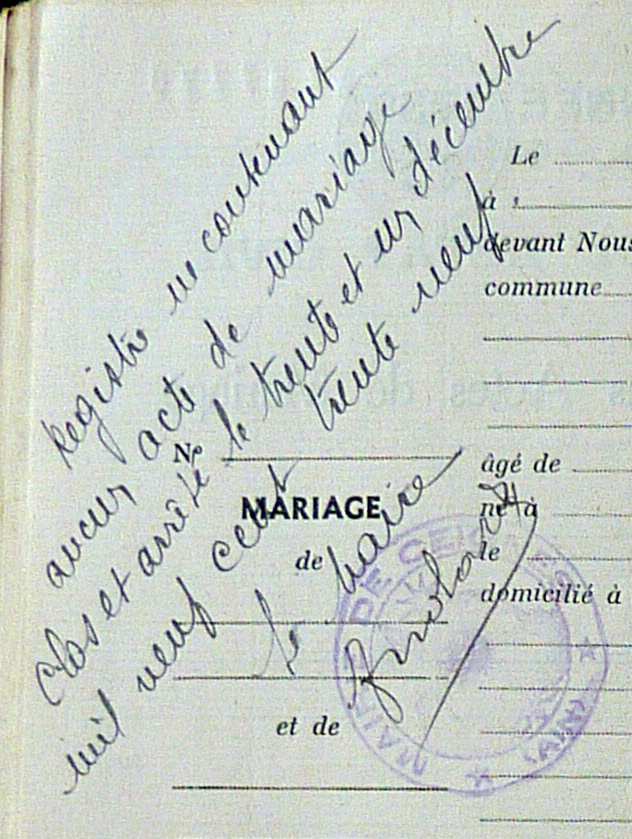 Registre ne contenant
aucun acte de mariage
Clos et arrêté le trente et un décembre
mil neuf cent trente neuf
le Maire
N°
MARIAGE
de
et de
Le
à
devant Nous
commune
âgé de
né à
le
domicilié à
MAIRIE DE